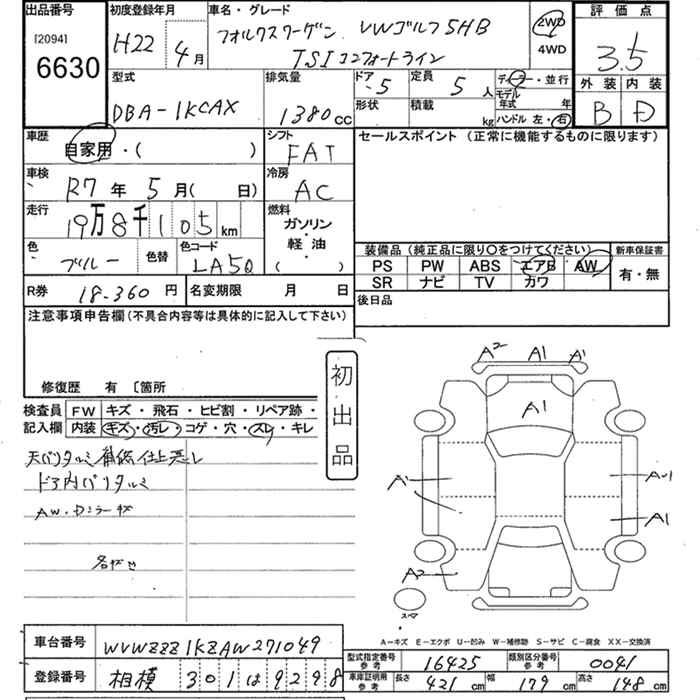 出品番号
[2094]
6630
初度登録年月
H22 4月
車名・グレード
フォルクスワーゲン VWゴルフ5HB
TSIコンフォートライン
2WD
4WD
評価点
3.5
外装 内装
B D
型式
DBA-1KCAX
排気量
1380cc
ドア -5
定員 5人
ディーラー・並行
形状
積載 kg
モデル年式 年
ハンドル 左・右
車歴
自家用・( )
シフト
FAT
セールスポイント (正常に機能するものに限ります)
車検
R7年 5月( 日)
冷房
AC
走行
19万8千105km
燃料
ガソリン
・
軽油
( )
色
ブルー
色替
色コード
LA5Q
装備品 (純正品に限り○をつけてください)
新車保証書
PS PW ABS エアB AW
有・無
SR ナビ TV カワ
R券 18.360円
名変期限 月 日
後日品
注意事項申告欄(不具合内容等は具体的に記入して下さい)
修復歴 有 〔箇所
初出品
検査員
記入欄
FW キズ・飛石・ヒビ割・リペア跡・
内装 キズ・汚レ・コゲ・穴・スレ・キレ
天バリタルミ 補修仕上悪し
ドア内バリタルミ
AW・Dミラーキズ
A2 A1 A'
A1
A'
A-1
A1
A2
スマ
A-キズ E-エクボ U-凹み W-補修跡 S-サビ C-腐食 XX-交換済
車台番号 WVWZZZ1KZAW271049
登録番号 相模 301 は 9298
型式指定番号 参考 16425
類別区分番号 参考 0041
車庫証明用 参考 長さ 421cm 幅 179cm 高さ 148cm